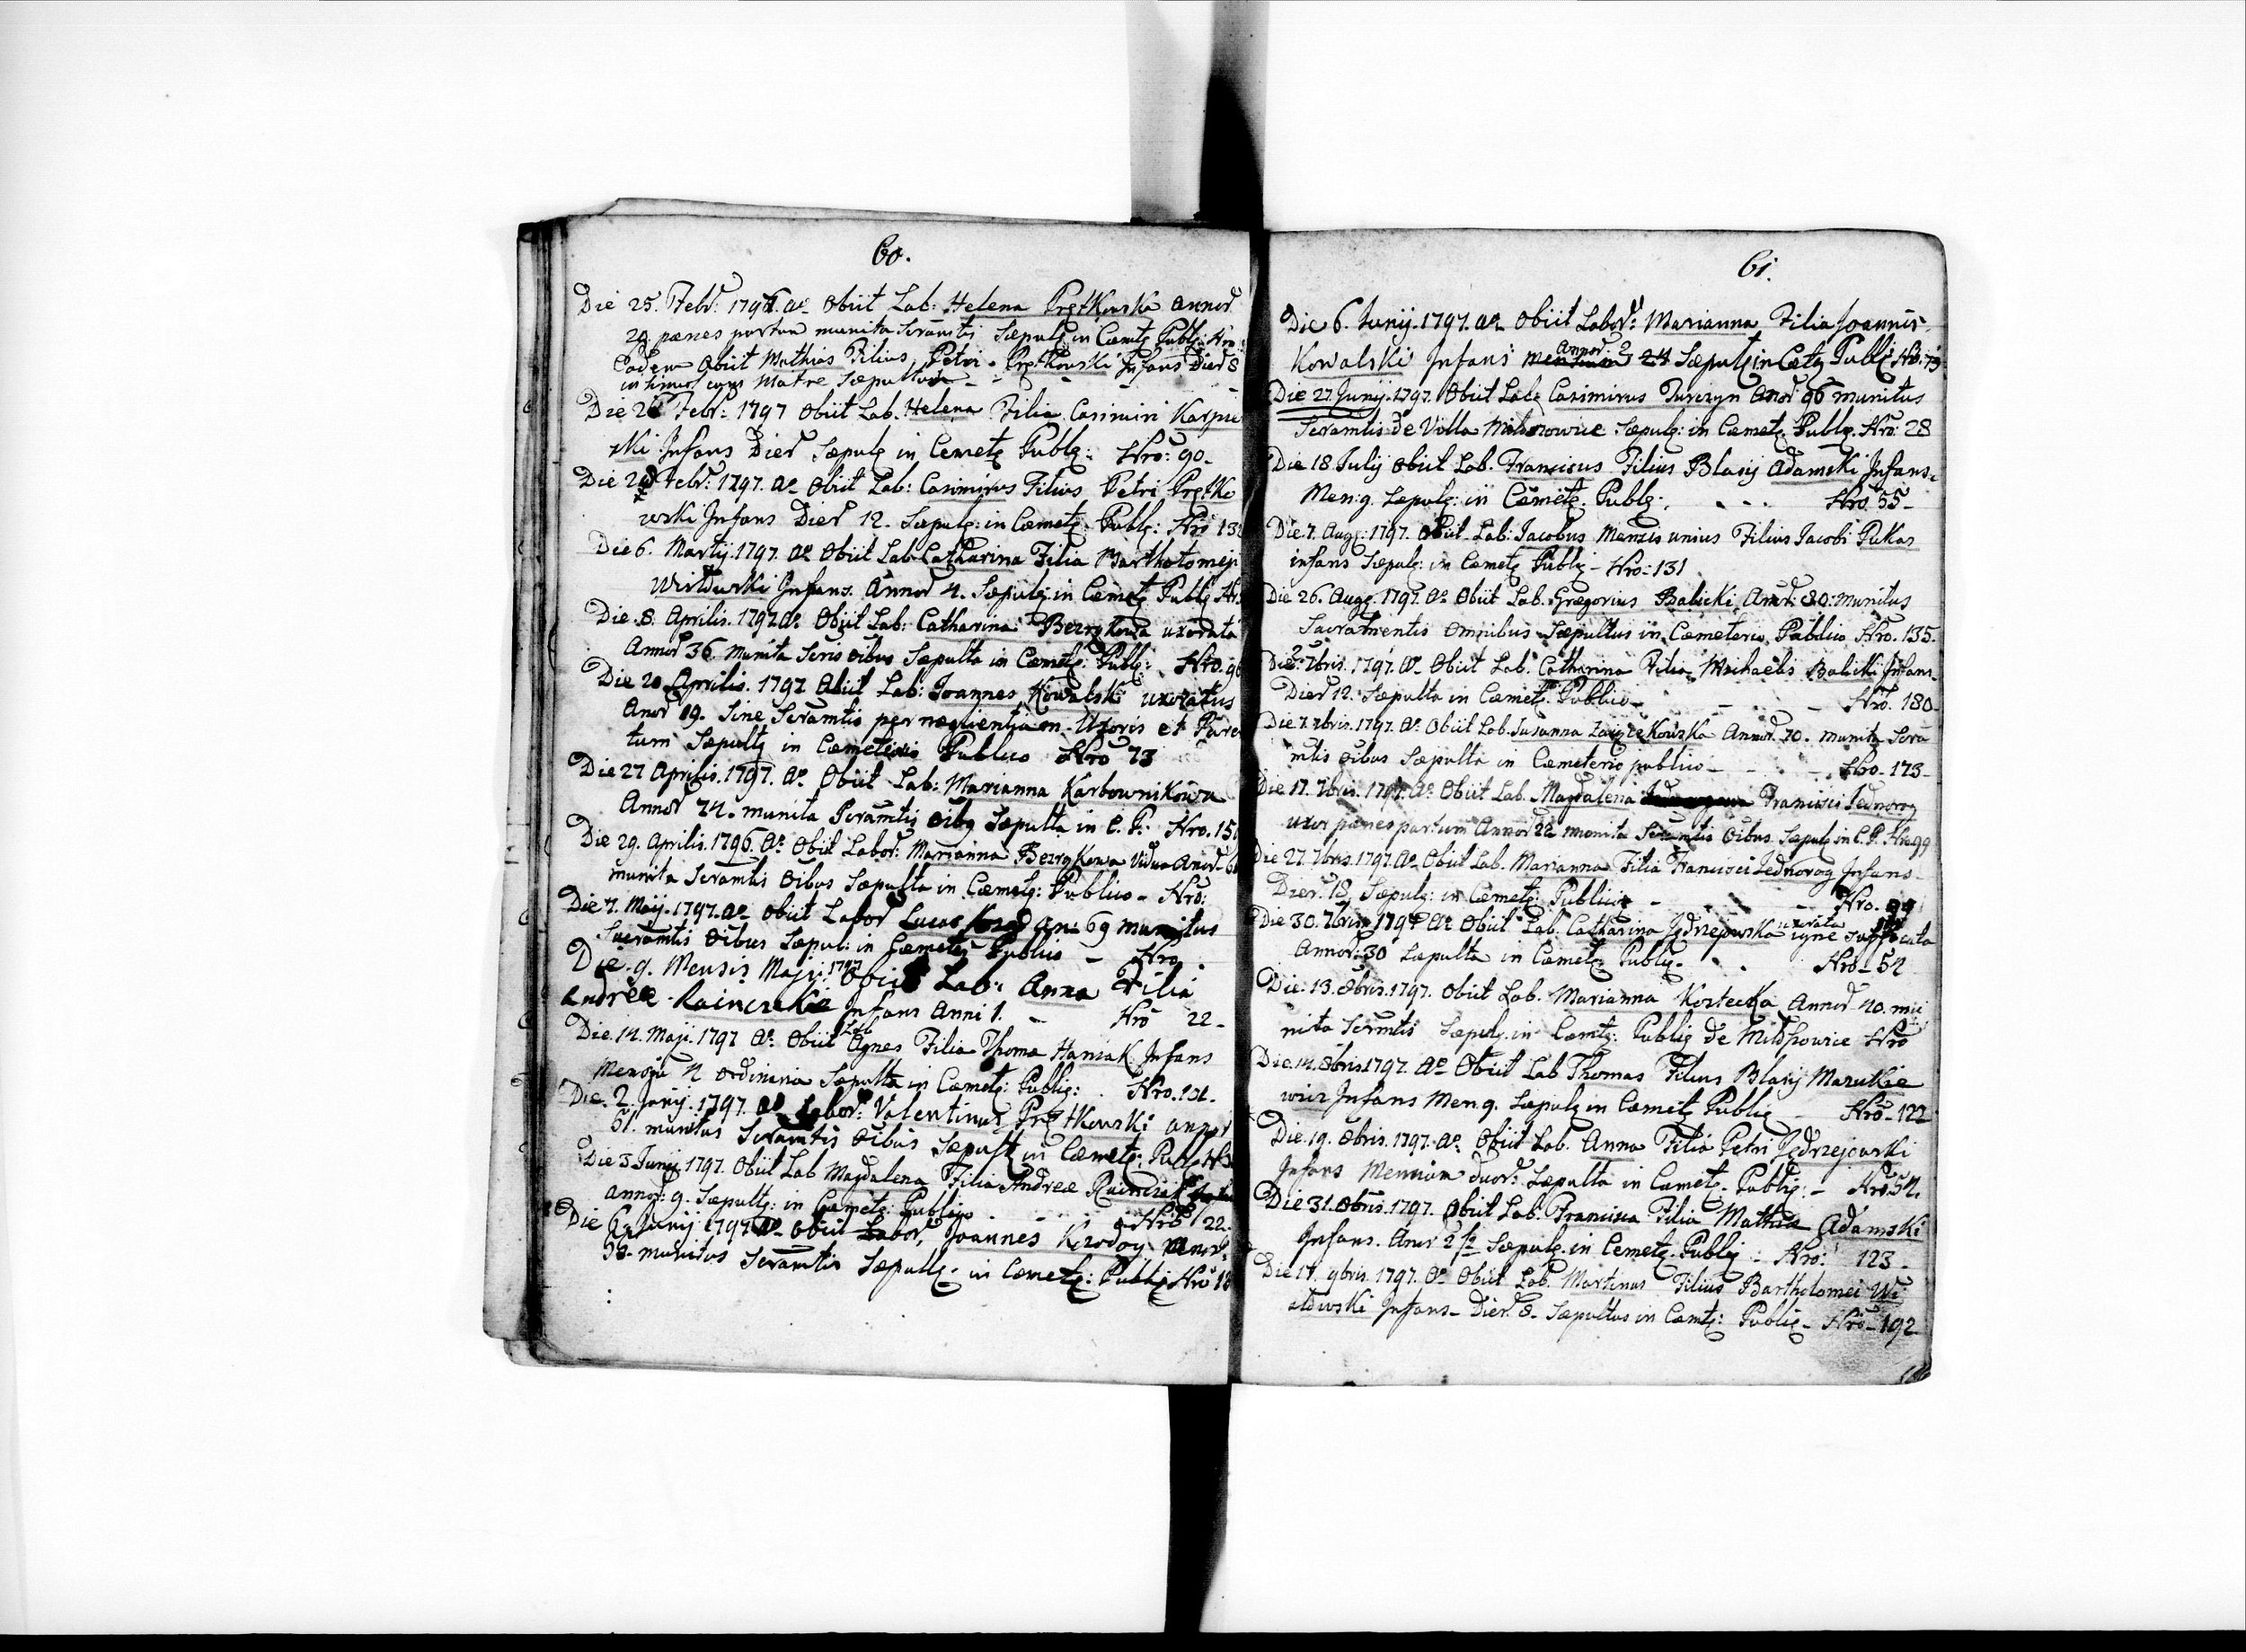 60.
Die 25. Febr: 1797. Aº Obiit Lab: Helena Prętkowska Annor
29. pænes partum munita Scramtis Sæpulz in Cæmtz Publ: Nro:
Eodem Obiit Mathias Filius Petri Prętkowski Infans Dier 8
in simul cum Matre Sæpultus
Die 26 Febr: 1797 Obiit Lab. Helena Filia Casimiri Karpie
ski Infans Dier Sæpulz in Cemetz Publz: Nro: 90.
Die Febr: 1797. Aº Obiit Lab: Casimirus Filius Petri Prętko
wski Infans Dier 12. Sæpulz: in Cæmetz Publz: Nro 13
Die 6. Martij 1797. Aº Obiit Lab: Catharina Filia Bartholomej
Infans. Annor 4. Sæpulz: in Cæmetz Publz Nr
Die 8. Aprilis. 1797 Aº Obiit Lab: Catharina uxorata
Annor 36. munita Scris oibus Sæpulta in Cæmetz: Publz: Nro. 9
Die 20 Aprilis. 1797 Obiit Lab: Joannes Kowalski uxoratus
Anor 19. Sine Scramtis per negligentiam Uxoris et Pare
tum Sæpultz in Cæmeterio Publico Nro 73
Die 27 Aprilis. 1797. Aº Obiit Lab: Marianna Karbownikowa
Annor 74. munita Scramtis oibz Sæpulta in C. P: Nro. 15
Die 29. Aprilis. 1796. Aº Obiit Labor: Marianna Vidua Anor 6
munita Scramtis Oibus Sæpulta in Cæmetz: Publico - Nro:
Die 7. Maij. 1797. Aº Obiit Labor Lucas an: 69 munitus
Sacramtis Oibus Sæpul: in Cæmetz Publico - Nro
Die 9. Mensis Maji: 1797 Obiit Lab: Anna Filia
Andreæ Infans Anni 1. - Nro 22-
Die 14. Maji. 1797 Aº Obiit Lab Agnes Filia Thoma Haniak Infans
4 Sæpulta in Cæmetz: Publiz: Nro.
Die 2. Junij. 1797. Aº Labor: Valentinus Prętkowski annor
51. munitus Scramtis Oibus Sæpultz in Cæmetz: Publz Nr
Die 3 Junij 1797. Obiit Lab Magdalena Filia Andreæ
annor: 9. Sæpultz: in Cæmetz: Publico Nro 22.
Die 6 Junij 1797 Aº Obiit Labor, Joannes Annor
munitus Scramtis Sæpultz: in Cæmetz: Publiz Nro 18
61.
Die 6. Junij. 1797. Aº Obiit Labor: Marianna Filia Joannis
Kowalski Infans Annor 2 24 Sæpulz in Cætz Publz Nro: 73
Die 27 Junij. 1797. Obiit Lab: Casimirus Turczyn Anor 96 munitus
Scramtis de Villa Sæpulz: in Cæmetz Publz. Nro: 28
Die 18 Julij Obiit Lab. Franciscus Filius Blasij Adamski Infans
Men: 9. Sæpulz: in Cæmetz: Publz: Nro. 55-
Die 7. Augz: 1797. Obiit Lab: Jacobus Mensis unius Filius Jacobi Pukas
infans Sæpulz: in Cæmetz Publz - Nro: 131
Die 26. Augz. 1797. Aº Obiit Lab. Gregorius Balicki Anor: 80: munitus
Sacramentis omnibus Sæpultus in Cæmeterio Publico Nro. 135.
Die 2. 7bris. 1797. Aº Obiit Lab. Catharina Filia Michaelis Balicki Infans
Dier 12. Sæpulta in Cæmetz Publico - Nro. 180-
Die 7. 7bris. 1797. Aº Obiit Lab. Susanna Annor. 70. munita Scra
mtis Oibus Sæpulta in Cæmeterio publico - Nro. 173-
Die 17. 7bris. 1797. Aº Obiit Lab. Magdalena Francisci Jednorog
uxor pænes partum Annor 22 munita Scramtis Oibus Sæpulz in C. P. Nro 99
Die 27. 7bris. 1797. Aº Obiit Lab. Marianna Filia Francisci Jednorog Infans
Dier. 18 Sæpulz: in Cæmetz: Publico - Nro. 99
Die 30. 7bris 1797 Aº Obiit Lab. Catharina Jędrzejowska uxorata igne suffocata
Annor 30 Sæpulta in Cæmetz Publz. Nro - 54
Die 13. 8bris. 1797. Obiit Lab. Marianna Kostecka Annor 40. mu
nita Scrmtis Sæpulz. in Cæmtz: Publiz de Nro
Die 14. 8bris 1797. Aº Obiit Lab Thomas Filius Blasij Marutkie
wicz Infans Men 9. Sæpulz in Cæmetz Publiz Nro - 122
Die 19. 8bris. 1797. Aº Obiit Lab. Anna Filia Petri Jędrzejowski
Infans Mensium duor: Sæpulta in Cæmetz. Publiz: - Nro. 54.
Die 31. 8bris. 1797. Obiit Lab. Francisca Filia Mathiæ Adamski
Infans. Anor 2 1/2 Sæpulz. in Cemetz. Publiz - Nro: 123-
Die 17. 9bris. 1797. Aº Obiit Lab. Martinus Filius Bartholomei Wi
Infans - Dier. 8. Sæpultus in Cæmtz: Publiz - Nro - 192